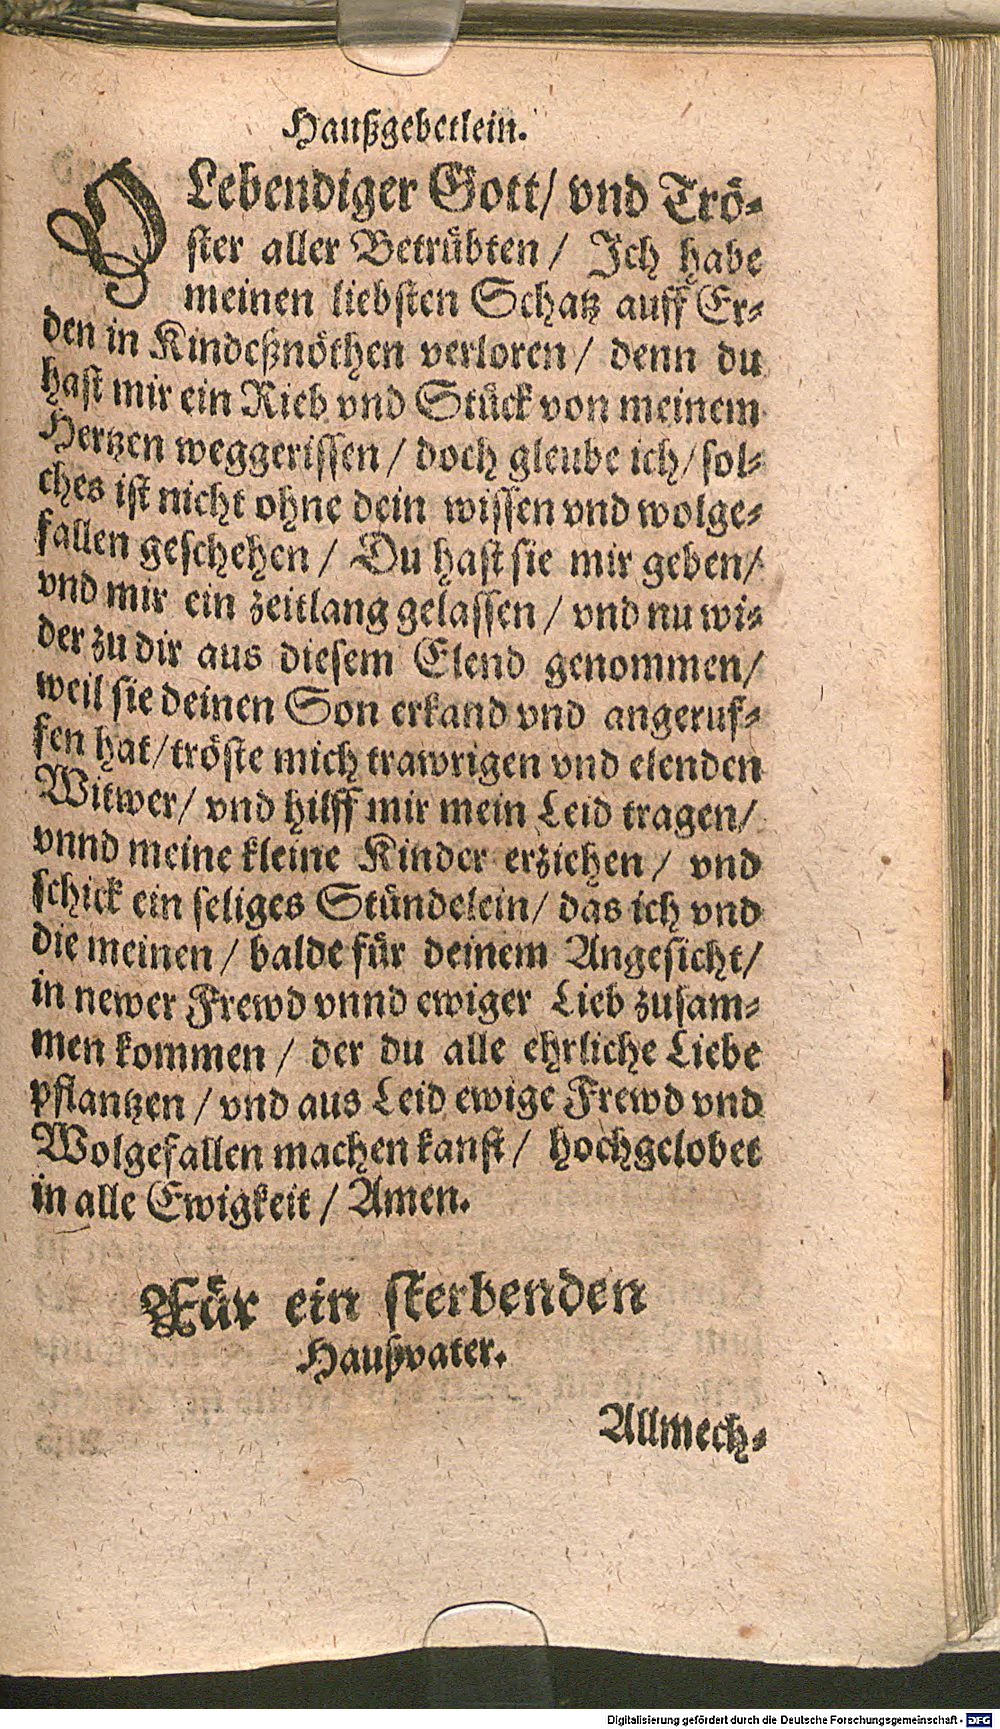 Haußgebetlein.
O Lebendiger Gott/ vnd Trö-
ster aller Betrübten / Jch habe
meinen liebsten Schatz auff Er-
den in Kindeßnöthen verloren / denn du
hast mir ein Rieb vnd Stück von meinem
Hertzen weggerissen / doch gleube ich / sol-
ches ist nicht ohne dein wissen vnd wolge-
fallen geschehen / Du hast sie mir geben/
vnd mir ein zeitlang gelassen / vnd nu wi-
der zu dir aus diesem Elend genommen/
weil sie deinen Son erkand vnd angeruf-
fen hat/ tröste mich trawrigen vnd elenden
Witwer/ vnd hilff mir mein Leid tragen/
vnnd meine kleine Kinder erziehen / vnd
schick ein seliges Stündelein/ das ich vnd
die meinen / balde für deinem Angesicht/
in newer Frewd vnnd ewiger Lieb zusam-
men kommen / der du alle ehrliche Liebe
pflantzen / vnd aus Leid ewige Frewd vnd
Wolgefallen machen kanst / hochgelobet
in alle Ewigkeit / Amen.
Für ein sterbenden
Haußvater.
Allmech-
Digitalisierung gefördert durch die Deutsche Forschungsgemeinschaft - DFG